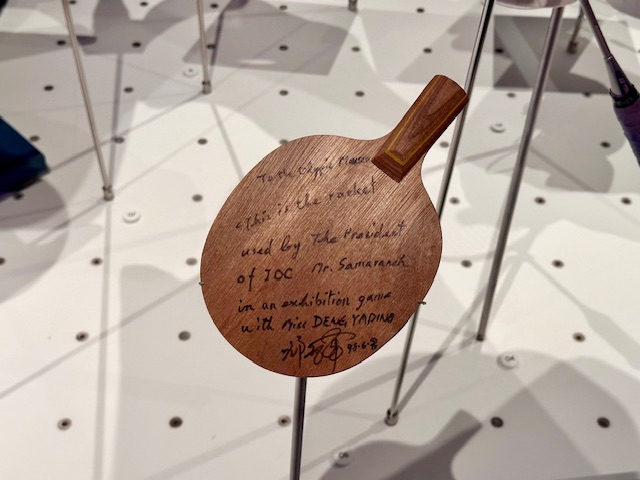 To the Olympic Museum
"This is the racket
used by The President
of IOC Mr. Samaranch
in an exhibition game
with Miss DENG YAPING
邓亚萍 95.6.